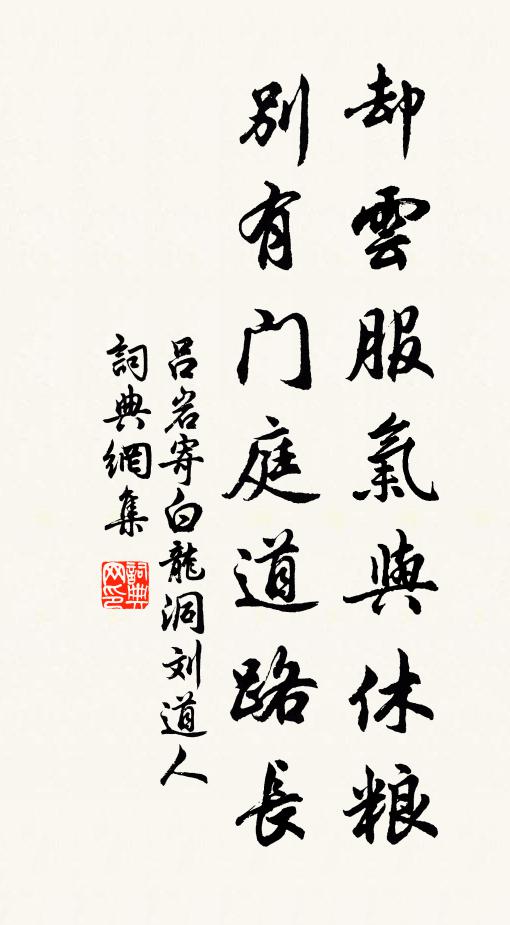 却雲服氣與休粮
別有门庭道路長
吕岩寄白龍洞刘道人
詞典網集
詞典网印